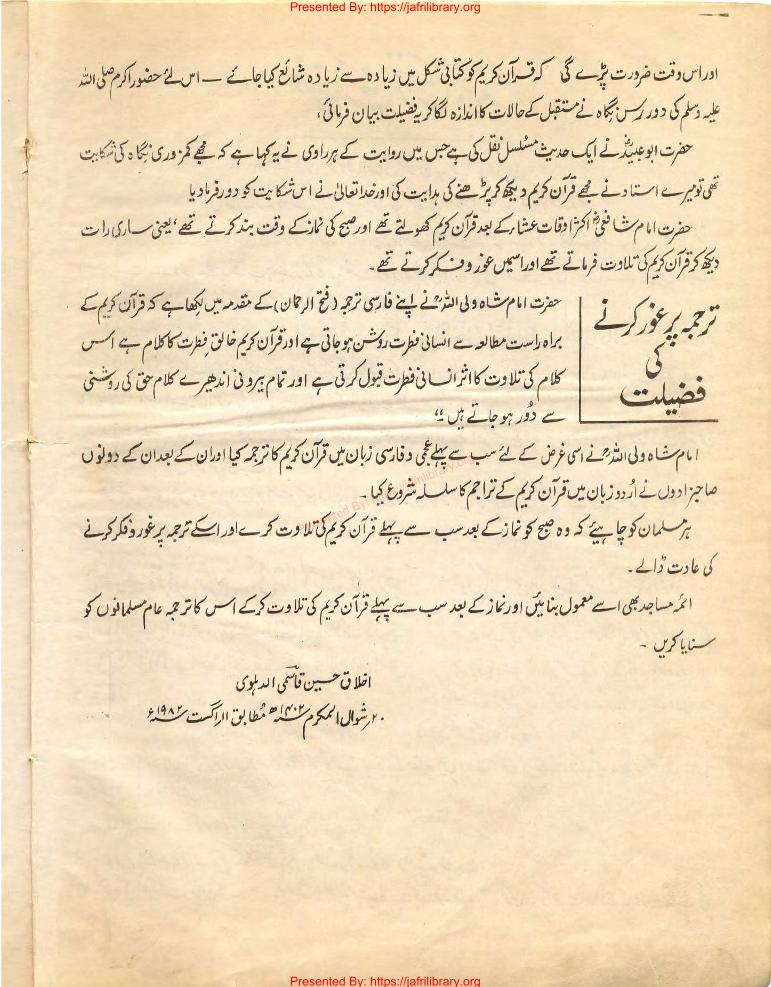 Presented By: https://jafrilibrary.org
اور اس وقت ضرورت پڑے گی کہ قرآن کریم کو کتابی شکل میں زیادہ سے زیادہ شائع کیا جائے — اس لئے حضور اکرم صلی اللہ
علیہ وسلم کی دور رس نگاہ نے مستقبل کے حالات کا اندازہ لگا کر یہ فضیلت بیان فرمائی،
حضرت ابو عبیدؓ نے ایک حدیث مسلسل نقل کی ہے جس میں روایت کے ہر راوی نے یہ کہا ہے کہ مجھے کمزوری نگاہ کی شکایت
تھی تو میرے استاد نے مجھے قرآن کریم دیکھ کر پڑھنے کی ہدایت کی اور خدا تعالیٰ نے اس شکایت کو دور فرما دیا
حضرت امام شافعیؒ اکثر اوقات عشاء کے بعد قرآن کریم کھولتے تھے اور صبح کی نماز کے وقت بند کرتے تھے، یعنی ساری رات
دیکھ کر قرآن کریم کی تلاوت فرماتے تھے اور اسمیں غور و فکر کرتے تھے۔
ترجمہ پر غور کرنے
کی
فضیلت
حضرت امام شاہ ولی اللہؒ نے اپنے فارسی ترجمہ (فتح الرحمان) کے مقدمہ میں لکھا ہے کہ قرآن کریم کے
براہ راست مطالعہ سے انسانی فطرت روشن ہو جاتی ہے اور قرآن کریم خالق فطرت کا کلام ہے اس
کلام کی تلاوت کا اثر انسانی فطرت قبول کرتی ہے اور تمام بیرونی اندھیرے کلام حق کی روشنی
سے دُور ہو جاتے ہیں ۔"
امام شاہ ولی اللہؒ نے اسی غرض کے لئے سب سے پہلے عجمی و فارسی زبان میں قرآن کریم کا ترجمہ کیا اور ان کے بعد ان کے دونوں
صاحبزادوں نے اُردو زبان میں قرآن کریم کے تراجم کا سلسلہ شروع کیا ۔
ہر مسلمان کو چاہیئے کہ وہ صبح کو نماز کے بعد سب سے پہلے قرآن کریم کی تلاوت کرے اور اسکے ترجمہ پر غور و فکر کرنے
کی عادت ڈالے ۔
ائمہ مساجد بھی اسے معمول بنائیں اور نماز کے بعد سب سے پہلے قرآن کریم کی تلاوت کر کے اس کا ترجمہ عام مسلمانوں کو
سنایا کریں ۔
اخلاق حسین قاسمی الدہلوی
۲۰ر شوال المکرم ۱۴۰۲ھ مُطابق ۱۱ر اگست ۱۹۸۲ء
Presented By: https://jafrilibrary.org